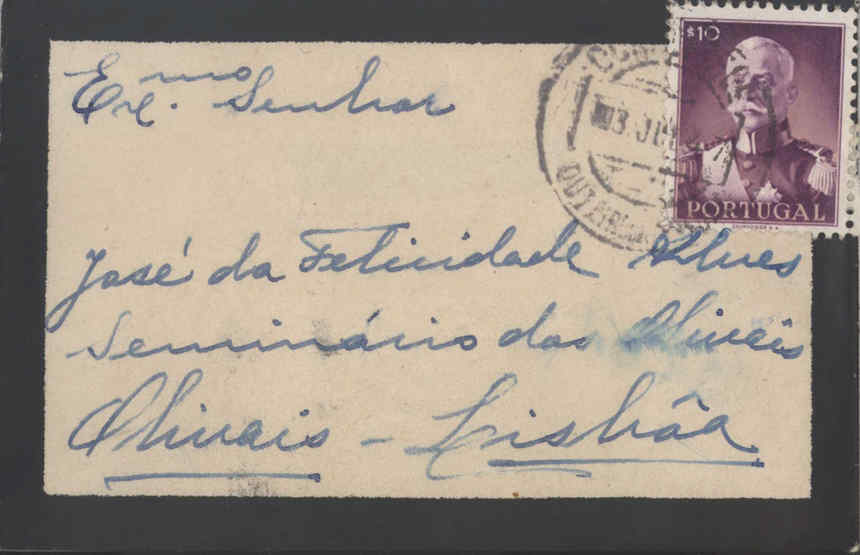 Ex.mo Senhor
$10
3 JUL
PORTUGAL
José da Felicidade Alves
Seminário dos Olivais
Olivais - Lisbôa